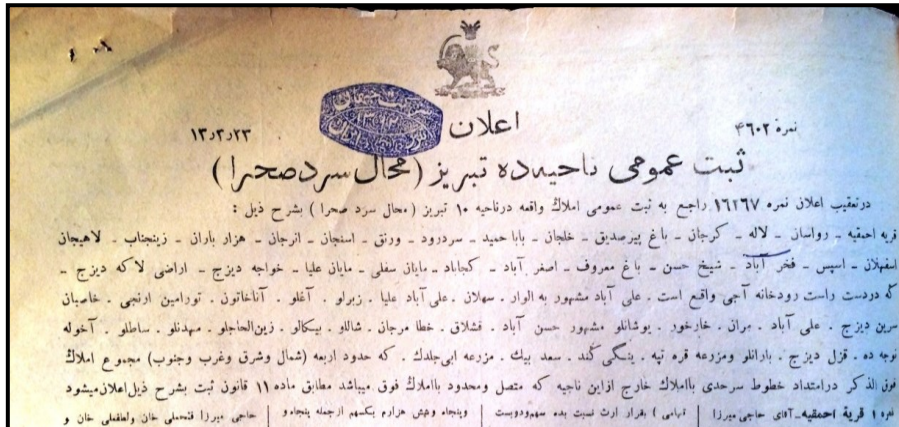 اعلان
نمره ۴۶۰۲
۱۳٫۲٫۲۳
ثبت عمومی ناحیه ده تبریز (محال سرد صحرا)
درتعقیب اعلان نمره ۱۶۲۶۷ راجع به ثبت عمومی املاك واقعه درناحیه ۱۰ تبریز ( محال سرد صحرا ) بشرح ذیل :
قریه احمقیه ـ رواسان ـ لاله ـ کرجان ـ باغ پیرصدیق ـ خلجان ـ بابا حمید ـ سردرود ـ ورنق ـ اسنجان ـ انرجان ـ هزار باران ـ زینجناب ـ لاهیجان
اسفهلان ـ اسپس ـ فخر آباد ـ شیخ حسن ـ باغ معروف ـ اصغر آباد ـ کجاباد ـ مایان سفلی ـ مایان علیا ـ خواجه دیزج ـ اراضی لاکه دیزج ـ
که دردست راست رودخانه آجی واقع است . علی آباد مشهور به الوار . سهلان . علی آباد علیا . زبرلو . آغلو . آناخاتون . تورامین ارنجی . خاصبان
سرین دیزج . علی آباد . بران . خارخور . یوشانلو مشهور حسن آباد . قشلاق . خطا مرجان . شاللو . بیكالو . زین‌الحاجلو . مهدنلو . ساطلو . آخوله
نوجه ده . قزل دیزج . بارانلو ومزرعه قره تپه . ینگی کند . سعد بیك . مزرعه ابی‌جلدك . که حدود اربعه (شمال وشرق وغرب وجنوب) مجموع املاك
فوق الذکر درامتداد خطوط سرحدی بااملاك خارج ازاین ناحیه که متصل ومحدود بااملاك فوق میباشد مطابق ماده ۱۱ قانون ثبت بشرح ذیل اعلان میشود
نمره ۱ قریة احمقیه ـ آقای حاجی میرزا
تمامی ) بقرار ارث نسبت بده سهم‌ودویست
وپنجاه وشش هزارم یکسهم ازجمله پنجاه‌و
حاجی میرزا فتحعلی خان ولطفعلی خان و